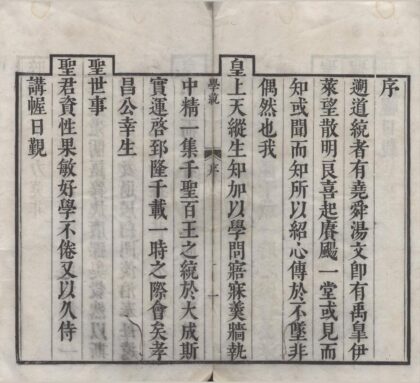 序
遡道統者有堯舜湯文即有禹皐伊
萊望散明良喜起賡颺一堂或見而
知或聞而知所以紹心傳於不墜非
偶然也我
皇上天縱生知加以學問寤寐羮牆執
學統
序
一
中精一集千聖百王之統於大成斯
實運啓郅隆千載一時之際會矣孝
昌公幸生
聖世事
聖君資性果敏好學不倦又以久侍
講幄日覲